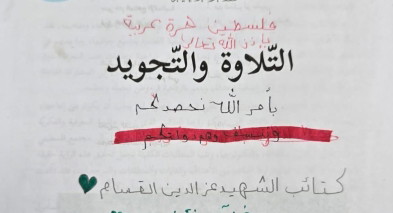 فلسطين حرة عربية
بإذن الله تعالى
التّلاوة والتّجويد
بأمر الله نحصدكم
كتائب الشهيد عز الدين القسام